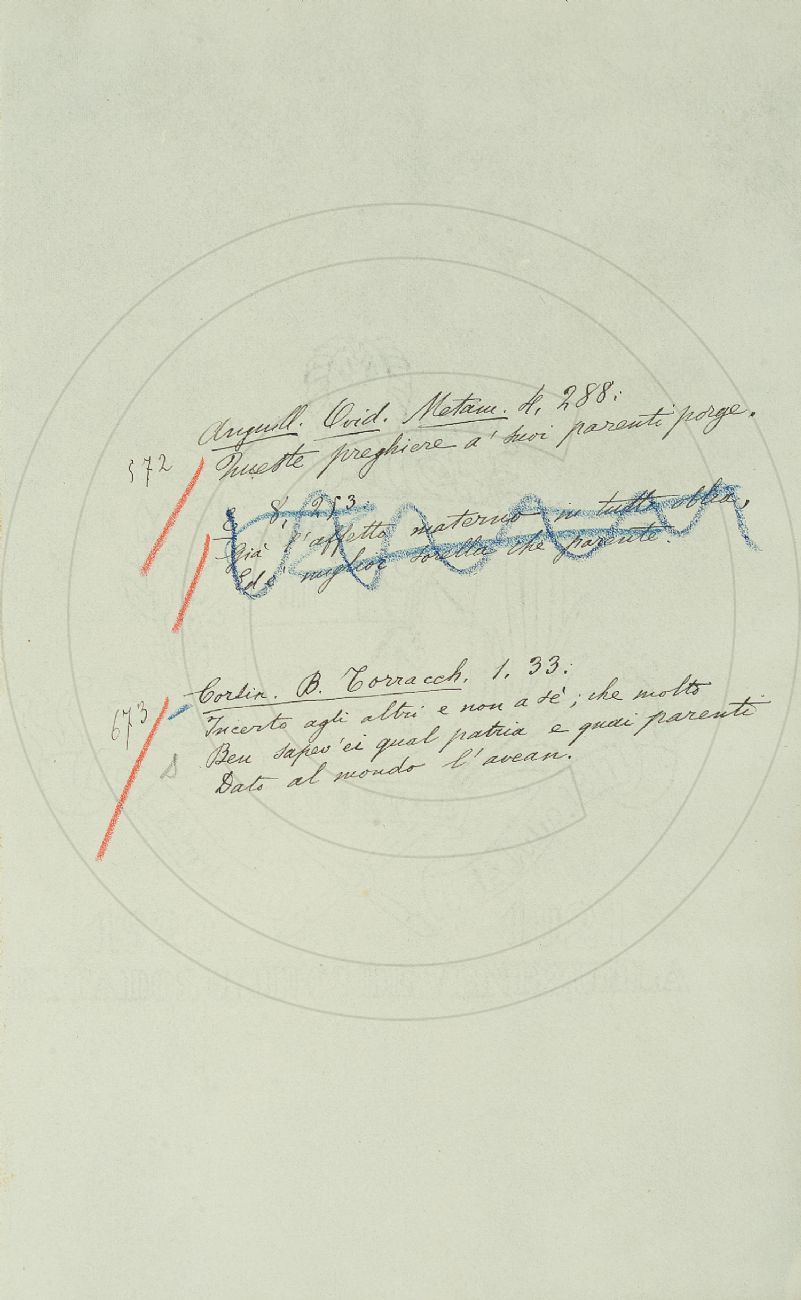 Anguill. Ovid. Metam. 4, 288:
572
Queste preghiere a' suoi parenti porge.
E 8, 253:
Già l'affetto materno in tutto oblia,
Ed è miglior sorella che parente.
Corsin. B. Torracch. 1. 33:
673
Incerto agli altri e non a sè; che molto
Ben sapev' ei qual patria e quai parenti
Dato al mondo l'avean.